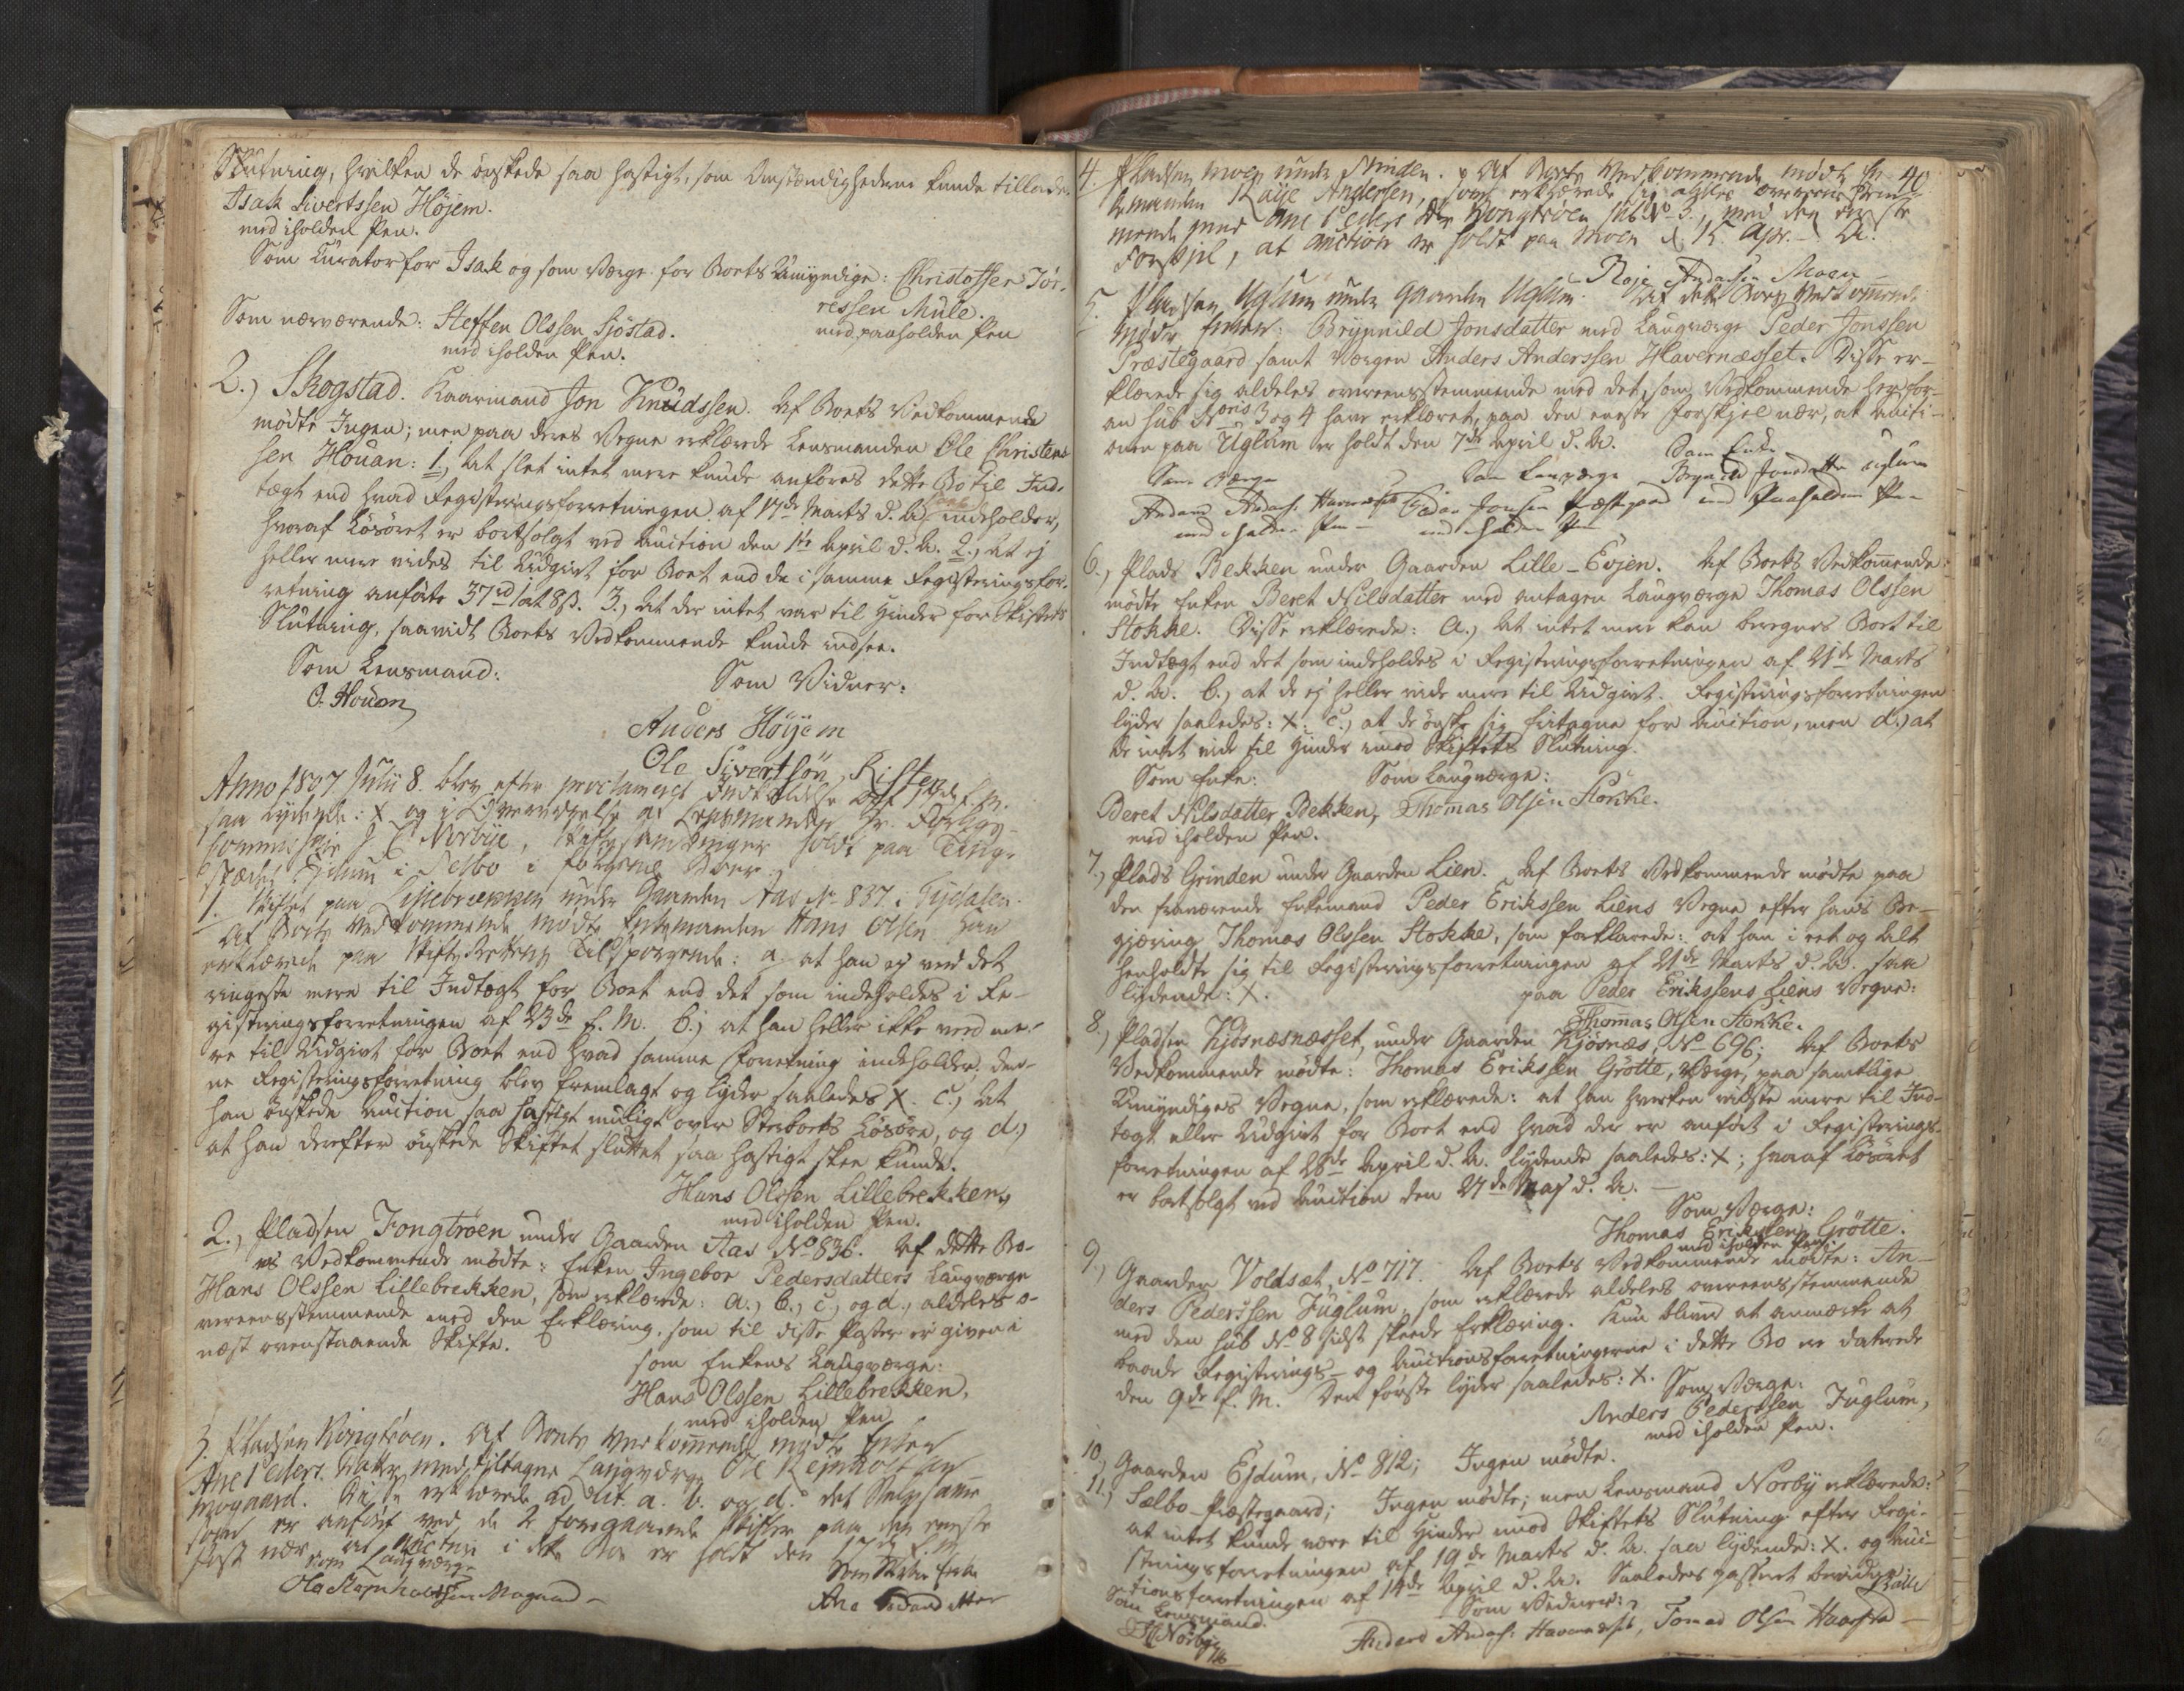 Slutning, hvilken de ønskede saa hastigt, som Omstændighederne kunde tillade.
Isak Sivertssen Höjem.
med iholden Pen.
Som Curator for Isak og som Værge for Boets Umyndige: Christoffer Tör-
ressen Mule.
med paaholden Pen
Som nærværende: Steffen Olssen Sjöstad.
med iholden Pen.
2.) Skogstad. Kaarmand Jon Knudssen. Af Boets Vedkommende
mödte Ingen; men paa deres Vegne erklærede Lensmanden Ole Christens
sen Houan: 1.) At slet intet mere kunde anföres dette Bo til Ind-
tægt end hvad Registreringsforretningen af 17de Marts d. A. indeholder,
hvoraf Lösöret er bortsolgt ved Auction den 1ste April d. A. 2.) At ej
heller mere vides til Udgivt for Boet end de i samme Registeringsfor-
retning anförte 37rd 1ort 8ß. 3.) At der intet var til Hinder for Skiftets
Slutning, saavidt Boets Vedkommende kunde indsee.
Som Lensmand:
O. Houan
Som Vidner:
Anders Höÿem
Ole Sivertsön Risten
Anno 1807 Julii 8. blev efter proclameret Indkaldelse af
saa lydende: X og i Overværelse af Lensmanden Hr. Forligs-
commissair Norbye, holdt paa Ting-
stædet Ejdum i Selbo i følgende Boer:
1. Skiftet paa Lillebrekken under Gaarden Aas No 837 i Tydalen.
Af Boets Vedkommende mødte Enkemanden Hans Olsen han
erklærede paa Skifte Rettens Tilspørgende: a. at han ej veed det
ringeste mere til Indtægt for Boet end det som indeholdes i Re-
gistringsforretningen af 23de f. M. b.) at han heller ikke veed me-
re til Udgivt for Boet end hvad samme Forretning indeholder; den-
ne Registeringsforretning blev fremlagt og lyder saaledes X. c.) At
han önskede Auction saa hastigt muligt over Sterboets Lösöre, og d.)
at han derefter önskede Skiftet sluttet saa hastigt skee kunde.
Hans Olssen Lillebrekken,
med iholden Pen.
2.) Pladsen Tongtröen under Gaarden Aas No 836. Af dette Bo-
es Vedkommende mödte: Enken Ingebor Pedersdatters Laugværge
Hans Olssen Lillebrekken, som erklærede: a.) b.) c.) og d.) aldeles o-
vereensstemmende med den Erklæring, som til disse Poster er given i
næst ovenstaaende Skifte.
som Enkens Laugværge:
Hans Olssen Lillebrekken,
med iholden Pen
3. Pladsen Kongtröen. Af Boets Vedkommende mødte Enken
Ane Peders Datter med tiltagne Laugværge Ole Rejnholtsen
Mogaard. erklærede ad Lit. a. b. og d. det Selvsamme
som er anført ved de 2 foregaaende Skifter paa den eneste
Post nær at Auction i dette Boe er holdt den
som Laugværge
Ole Rejnholtsen Mogaard
Som Enke
Ane Pedersdatter
40
4. Pladsen Moen under Stinden. Af Boets Vedkommende mødte En-
kemanden Roije Andersen, som erklærede sig aldeles overeensstem-
mende med Ane Peders Dtr Kongtröen sub No 3., med den eneste
Forskjel, at Auction er holdt paa Moen d. 15 Apr. d. A.
Roje Andersen Moen
5. Pladsen Uglum under Gaarden Uglum. Af dette Boes Vedkommende
møder Enken: Brÿnnild Jonsdatter med Laugværge Peder Jonssen
Præstegaard samt Værgen Anders Anderssen Havernæsset. Disse er-
klærede sig aldeles overeensstemmende med det, som Vedkommende her for-
an sub Noris 3 og 4 have erklæret, paa den eneste Forskjel nær, at Aucti-
onen paa Uglum er holdt den 7de April d. A.
Som Værge
Anders Anders. Havernæsset
med iholden Pen
Som Laugværge
Peder Jonsen Præstegaard
med iholden Pen
Som Enke
Brynild Jonsdatter Uglum
med Paaholden Pen
6.) Plads Bekken under Gaarden Lille-Evjen. Af Boets Vedkommende
mödte Enken Beret Nilsdatter med antagen Laugværge Thomas Olssen
Stokke. Disse erklærede: a.) At intet mere kan beregnes Boet til
Indtægt, end det som indeholdes i Registringsforretningen af 21de Marts
d. A. b.) at de ej heller vide mere til Udgivt. Registringsforretningen
lyder saaledes: X. c.) at de önske sig fritagne for Auction, men d.) at
de intet vide til Hinder imod Skiftets Slutning.
Som Enke:
Som Laugværge:
Beret Nilsdatter Bekken, Thomas Olsen Stokke.
med iholden Pen.
7.) Plads Grinden under Gaarden Lien. Af Boets Vedkommende mödte paa
den fraværende Enkemand Peder Erikssen Liens Vegne efter hans Be-
gjæring Thomas Olssen Stokke, som forklarede: at han i eet og alt
henholdte sig til Registeringsforretningen af 21de Marts d. A. saa
lydende: X.
paa Peder Erikssens Liens Vegne:
Thomas Olsen Stokke.
8.) Pladsen Kjösnæsnæsset, under Gaarden Kjösnæs, No 696; Af Boets
Vedkommende mödte: Thomas Erikssen Grötte, Værge, paa samtlige
Umyndiges Vegne, som erklærede: at han hverken vidste mere til Ind-
tægt eller Udgivt for Boet end hvad der er anfört i Registerings-
forretningen af 28de April d. A. lydende saaledes: X; hvoraf Lösöret
er bortsolgt ved Auction den 27de Maj d. A.
Som Værge:
Thomas Erikssen Grötte.
med iholden Pen.
9.) Gaarden Voldsæt, No 717. Af Boets Vedkommende mödte: An-
ders Pederssen Fuglum, som erklærede aldeles overeensstemmende
med den sub No 8 sidst skeede Erklæring. Kun bliver at anmærke at
baade Registrings- og Auctionsforretningerne i dette Bo er daterede
den 9de f. M. Den förste lyder saaledes: X.
Som Værge:
Anders Pederssen Fuglum,
med iholden Pen.
10.) Gaarden Ejdum, No 812; Ingen mödte.
11.) Sælbo-Præstegaard; Ingen mödte; men Lensmand Norby erklærede:
at intet kunde være til Hinder mod Skiftets Slutning efter Regi-
streringsforretningen af 19de Marts d. A. saa lydende: X. og Auc-
tionsforretningen af 14de April d. A. Saaledes passeret bevidner
Som Lensmand.
Norbye
Som Vidner:
Anders Anders. Havernæsset, Tomas Olsen Haarstad